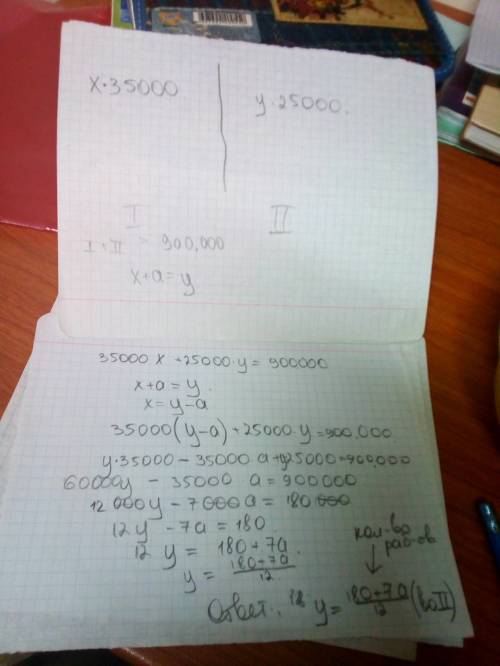 x·35000
y·25000.
I
II
I + II = 900,000
x+a=y
35000 x +25000·y = 900000
x+a=y.
x=y-a
35000(y-a)+25000·y=900,000.
y·35000 - 35000 a +y25000=900,000
60000y - 35000 a = 900000
12000y - 7000a = 180000
12y - 7a = 180
12 y = 180+7a
y = 180+7a/12
кол-во
раб-ов
Ответ: y= 180+7a/12 (во II)